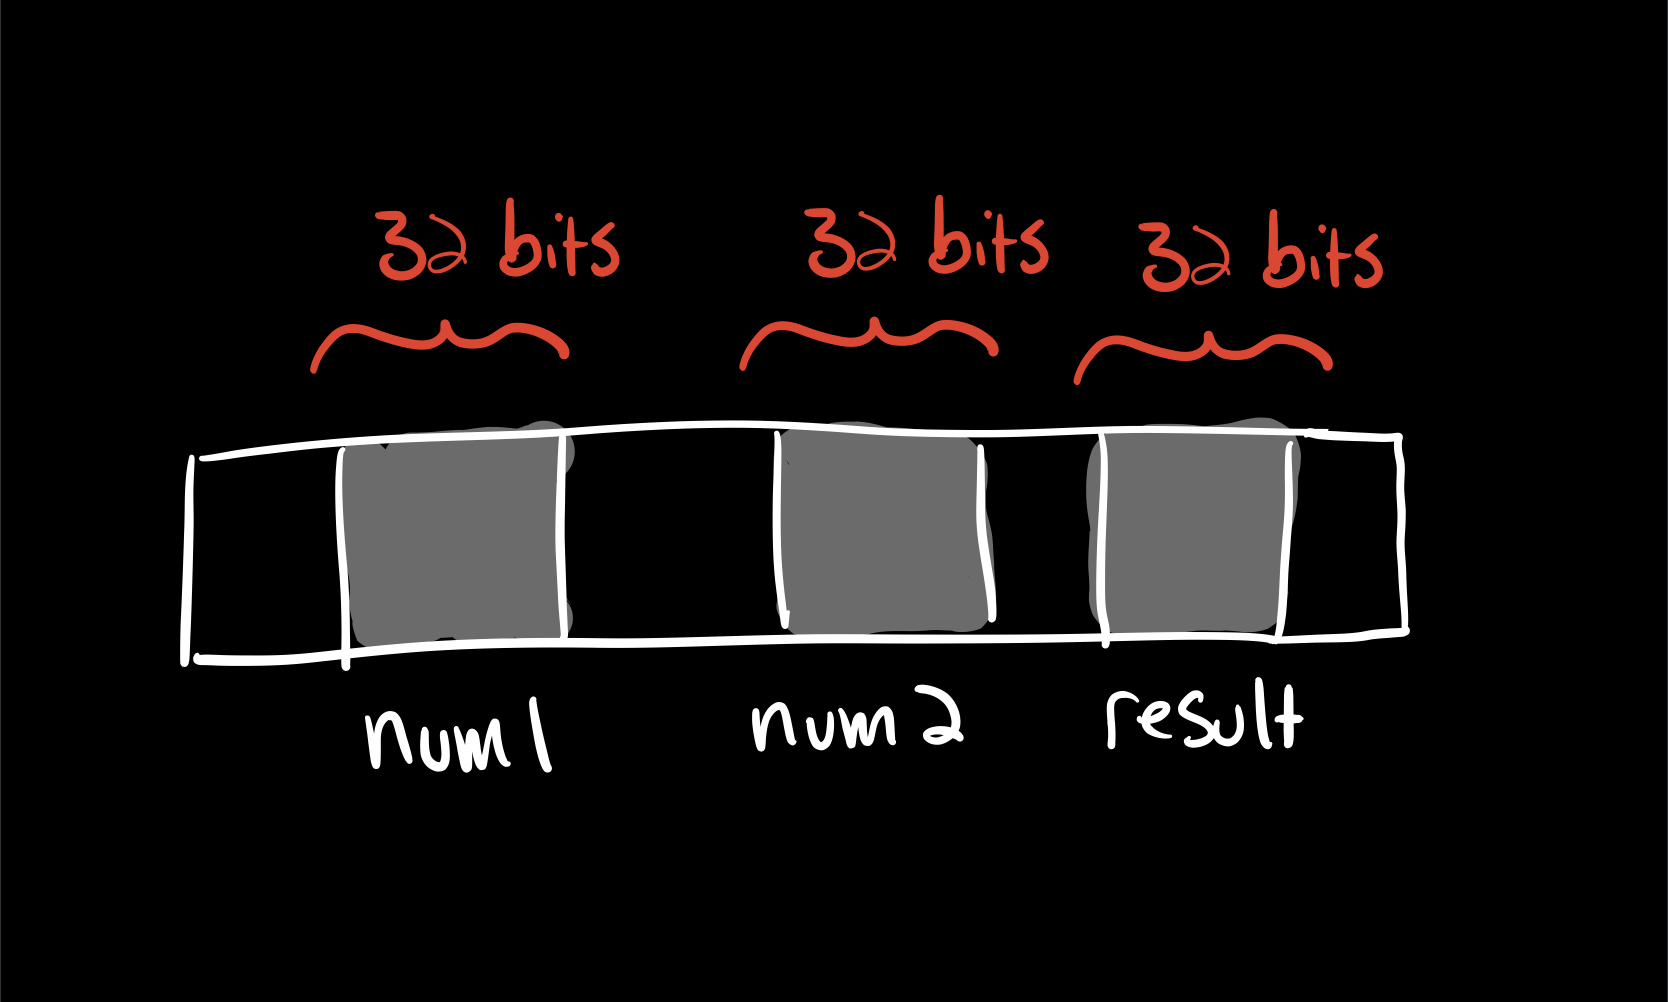 32 bits 32 bits 32 bits
num1 num2 result